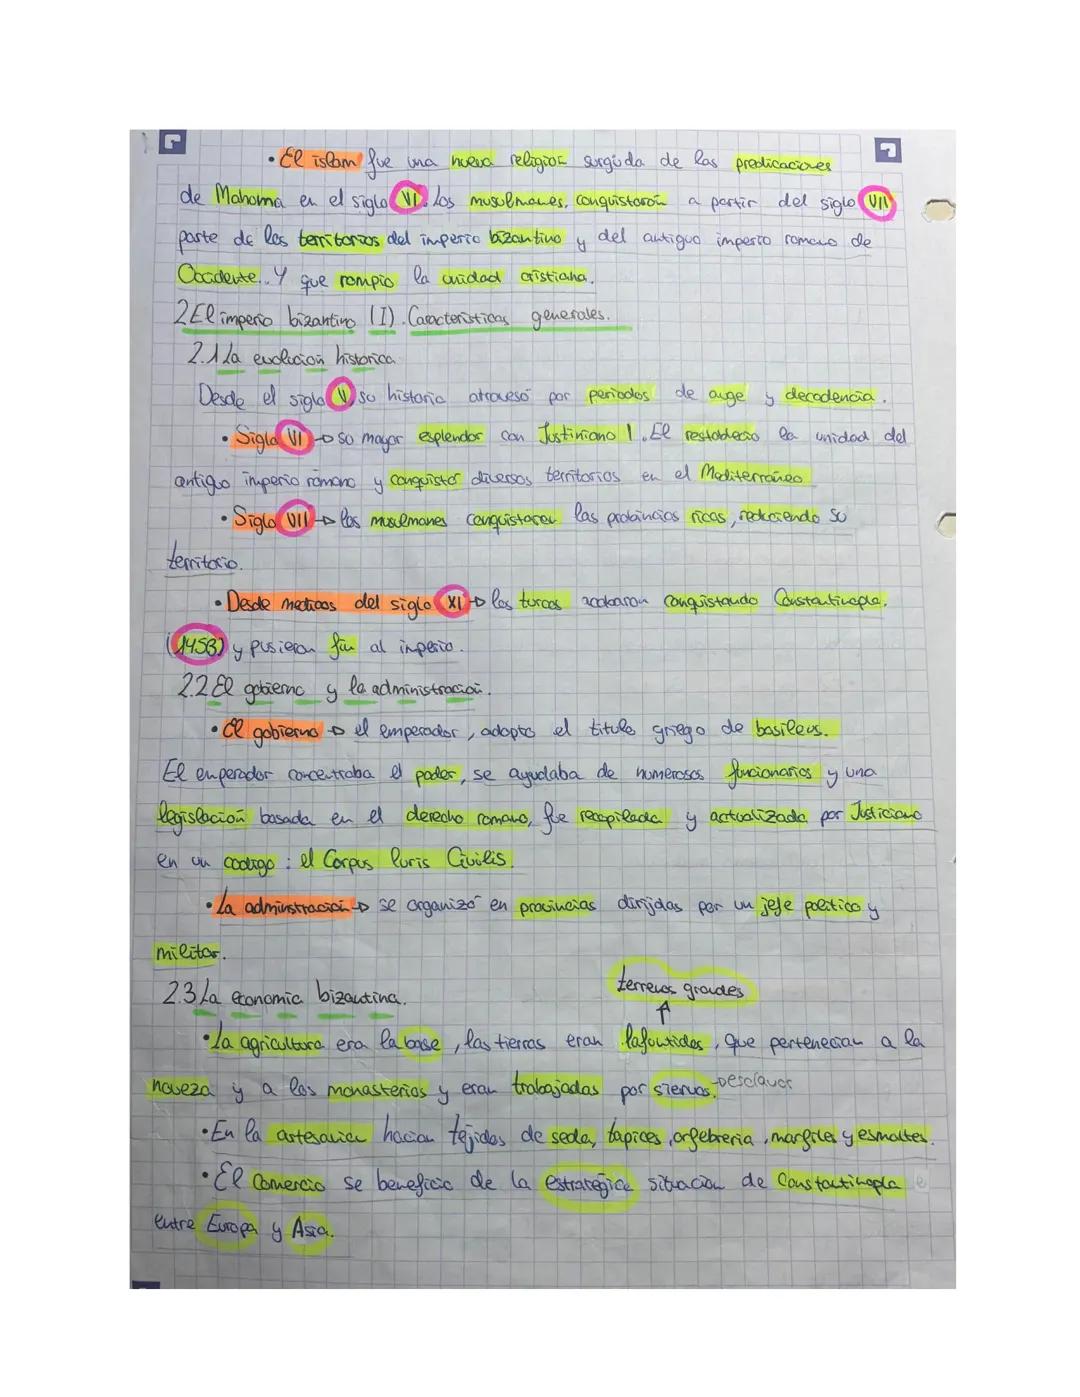 • El islam fue una nueva religion surguda de las predicaciones
de Mahoma en el siglo VI. Los musulmanes, conquistaron a partir del siglo VII
parte de los territorios del imperio bizantino y del antiguo imperio romano de
Occidente.. Y que rompio la unidad cristiana.
2 El imperio bizantino (I). Caracteristicas generales.
2.1 La evolucion historica
Desde el siglo V su historia atravesó por periodos de auge y decadencia.
• Siglo VI → so mayor esplendor con Justiniano I. El restablecio la unidad del
antiguo imperio romano y conquistar diversos territorios en el Mediterraneo
• Siglo VII → los musulmanes conquistaron las probincias ricas, reduciendo su
territorio.
• Desde medioos del siglo XI → los turcos acabaron conquistando Constantinopla.
(1453) y pusieron fin al imperio.
2.2 El gobierno y la administracion.
• El gobierno → el emperador, adopto el titulo griego de basileus.
El emperador concentraba el poder, se ayudaba de numerosos funcionarios y una
legislacion basada en el derecho romano, fue recopilada y actualizada por Justiciano
en un codigo: el Corpus Iuris Civilis.
• La adminstracion → se organizó en provincias dirijdas por un jefe politico y
militar.
2.3 La economia bizantina.
terrenos grandes
• La agricultura era la base, las tierras eran lafountidos, que pertenecian a la
nobeza y a los monasterios y eran trabajadas por siervos. → esclavos
• En la artesania hacian tejidos de seda, tapices, orfebreria, marfiles y esmaltes.
• El comercio se beneficio de la estrategica situacion de Constantinopla e
entre Europa y Asia.